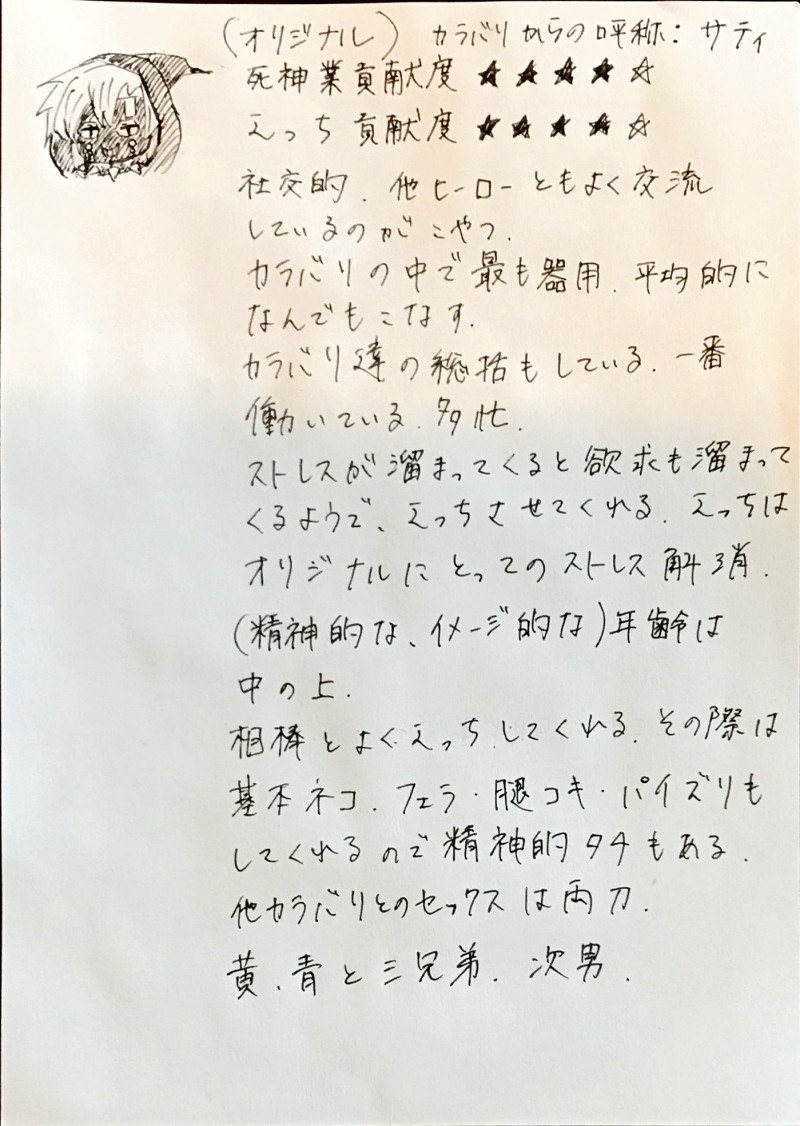 (オリジナル) カラバリからの呼称：サティ
死神業貢献度 ★★★★☆
えっち貢献度 ★★★★☆
社交的、他ヒーローともよく交流
しているのがこやつ。
カラバリの中で最も器用、平均的に
なんでもこなす。
カラバリ達の総括もしている。一番
働いている。多忙。
ストレスが溜まってくると欲求も溜まって
くるようで、えっちさせてくれる。えっちは
オリジナルにとってのストレス解消。
(精神的な、イメージ的な)年齢は
中の上。
相棒とよくえっちしてくれる。その際は
基本ネコ。フェラ・腿コキ・パイズリも
してくれるので精神的タチもある。
他カラバリとのセックスは両刀。
黄、青と三兄弟。次男。